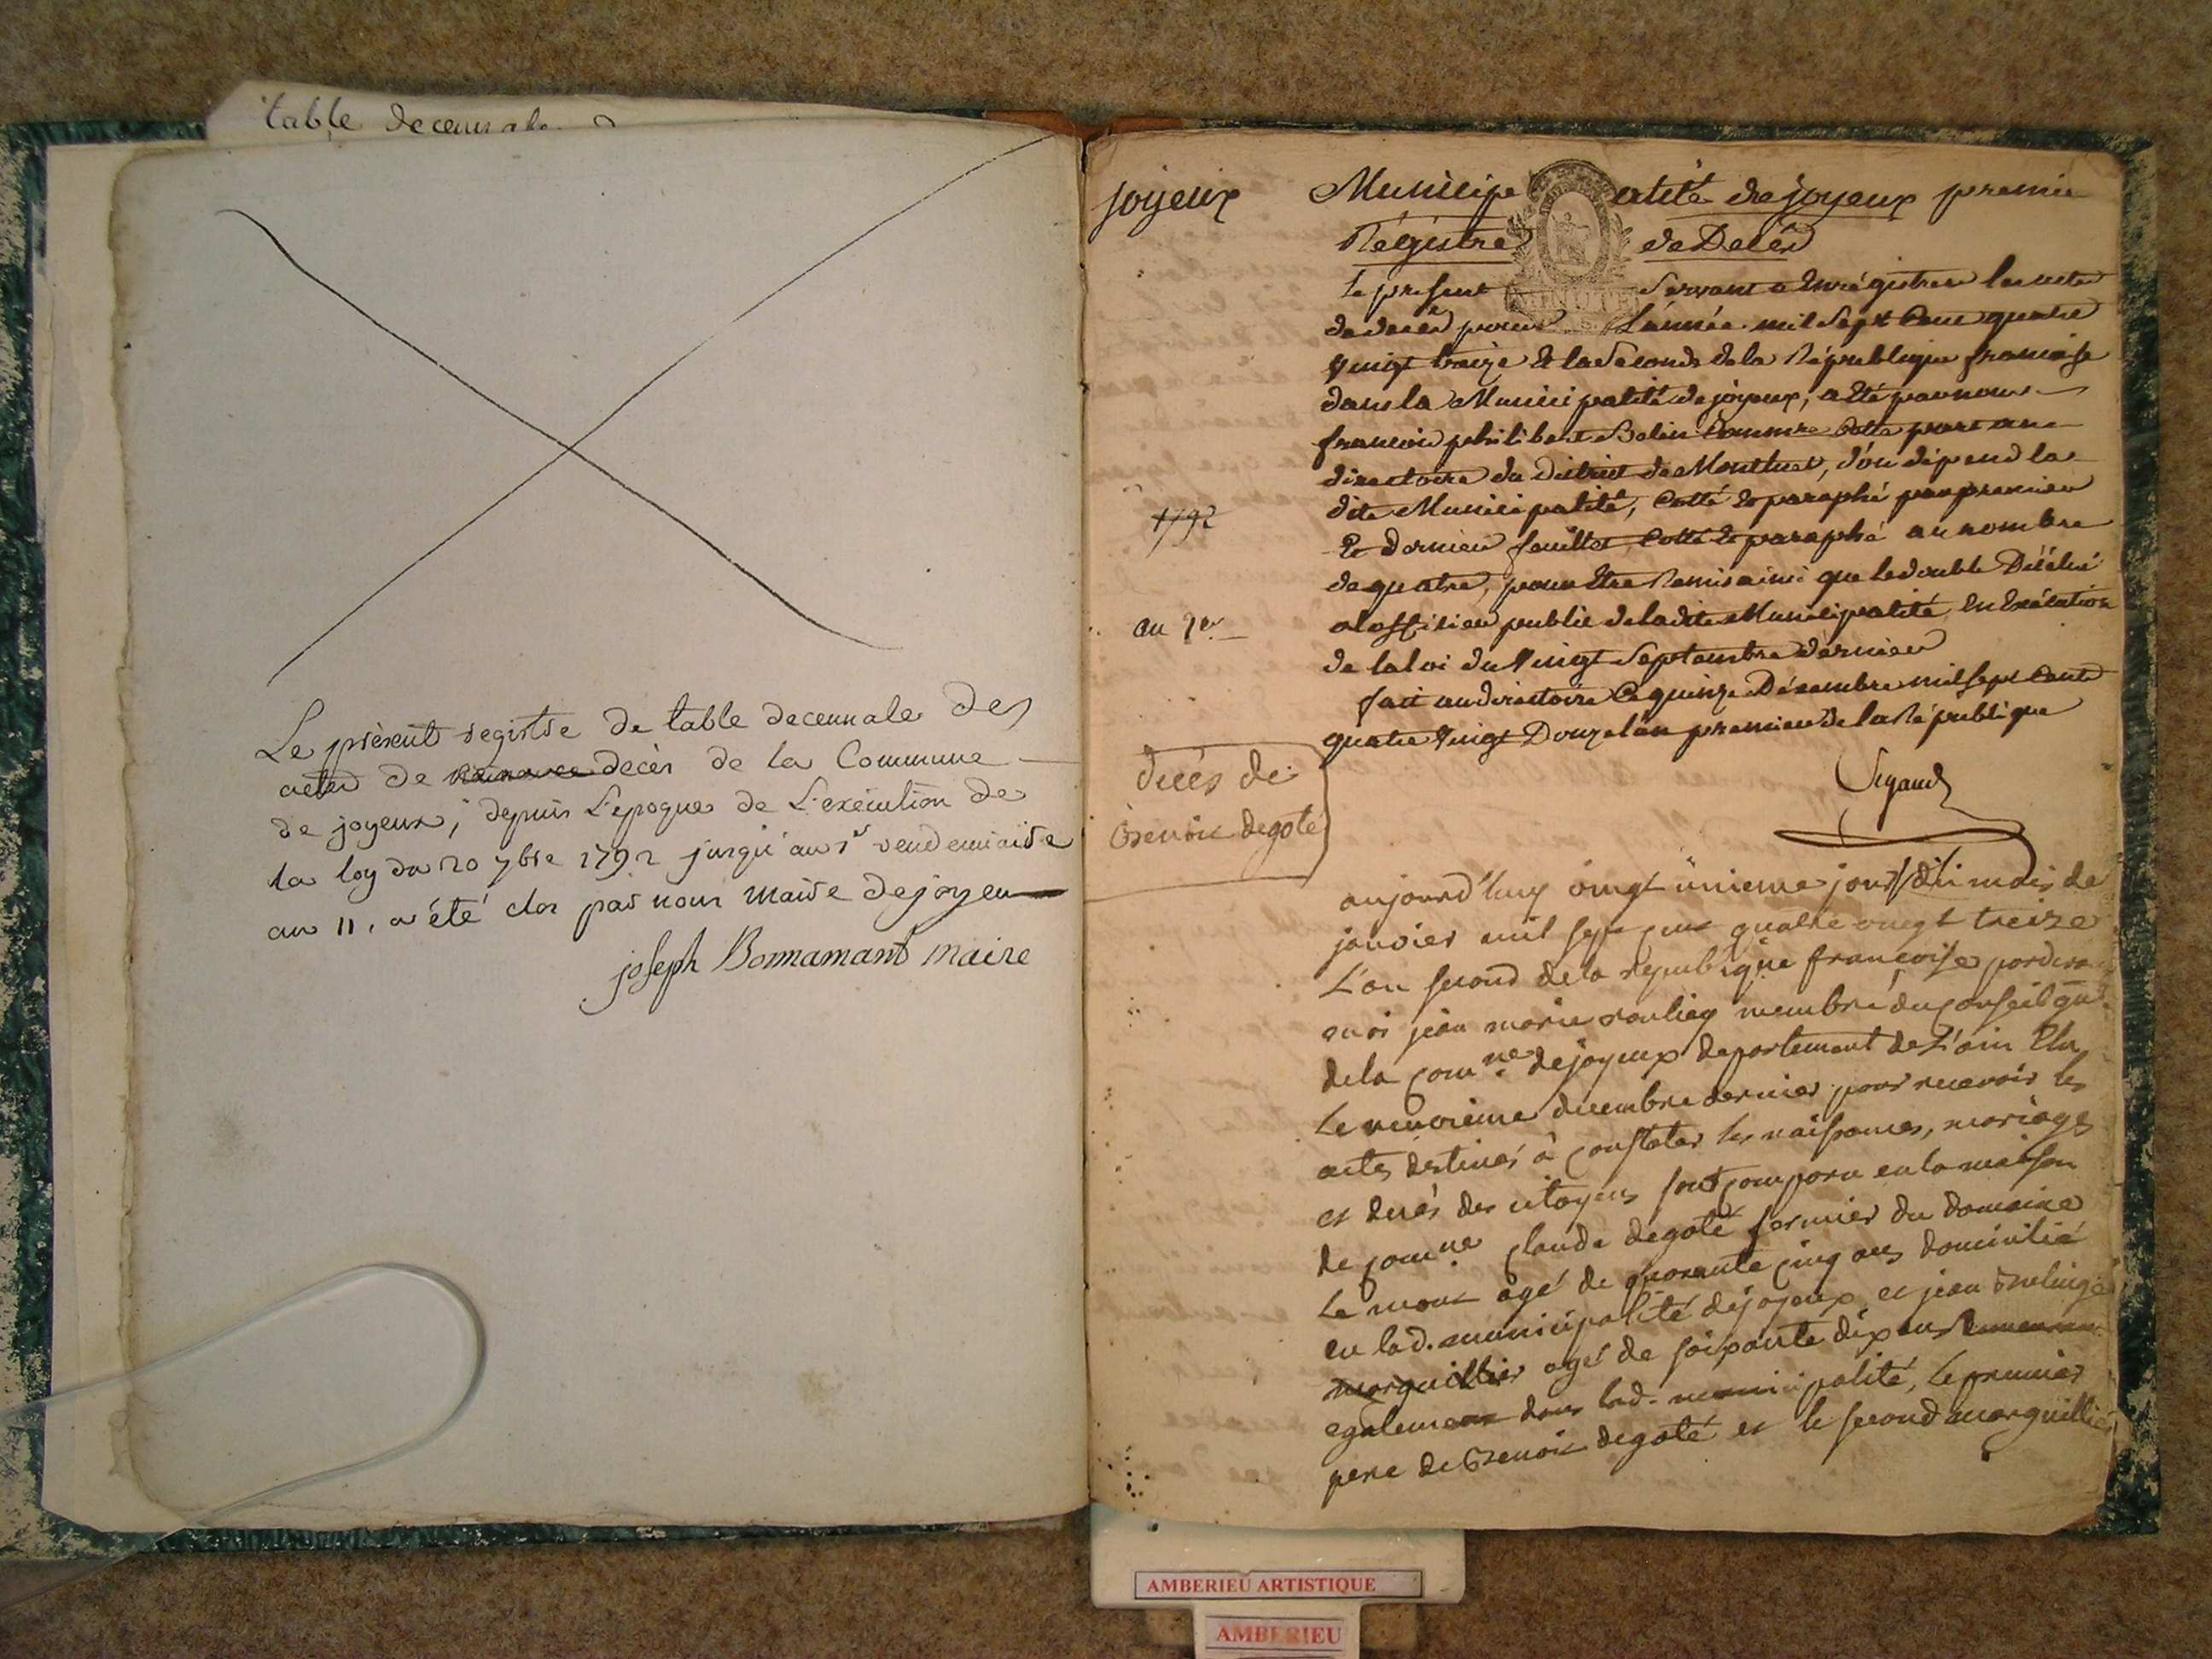 table decennale
Le présent registre de table decennale des
actes de decès de la Commune
de joyeux, depuis L'epoque de L'exécution de
la loy du 20 7bre 1792 jusqu'au 1er vendemiaire
an 11, a été clos par nous Maire de joyeux
joseph Bonnamant maire
joyeux
Municipalité de joyeux premier
Régistre de Décès
Le présent servant a Enrégistrer les actes
de décès pour L'année mil Sept Cent quatre
Vingt treize Et la Seconde de la République francaise
dans la Municipalité de joyeux, a Eté par nous
francois philibert
directoire du District de Montluel, d'ou dépend la
dite Municipalité, Cotté Et paraphé par premier
1792
Et dernier feuillet Cotté Et paraphé au nombre
de quatre, pour Etre Remis ainsi que le double
a l'officier public de ladite Municipalité En Exécution
au 9e
de la loi du Vingt Septembre dernier
fait au directoire Ce quinze Décembre mil Sept Cent
quatre Vingt Douze l'an premier de la République
Segaud
décès de
Benoit degoté
aujourd'huy vingt unieme jour du mois de
janvier mil sept cent quatre vingt treize
L'an second de la republique françoise pardevant
moi jean marie membre du conseil gn
de la comne de joyeux departement de L'ain Elu
Le neuvieme decembre dernier pour recevoir les
actes destinés à constater les naissances, mariages
et decès des citoyens sont comparu en la maison
de comne claude degoté fermier du domaine
Le mont agé de quarante cinq ans domicilié
en lad. municipalité de joyeux et jean
marguillier agé de soixante dix ans
egalement dans lad. municipalité, Le premier
pere de Benoit degoté et le second marguillier
AMBERIEU ARTISTIQUE
AMBERIEU